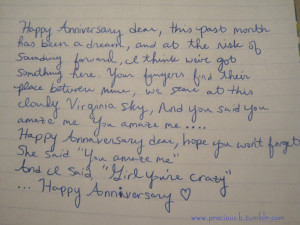 Happy Anniversary dear, this past month
has been a dream, and at the risk of
sounding forward, I think we've got
something here. Your fingers find their
place between mine, we stare at this
cloudy Virginia sky, And you said you
amaze me. You amaze me....
Happy Anniversary dear, hope you won't forget
She said "You amaze me"
And I said, "Girl You're crazy"
... Happy Anniversary ♡
www.preciousb.tumblr.com